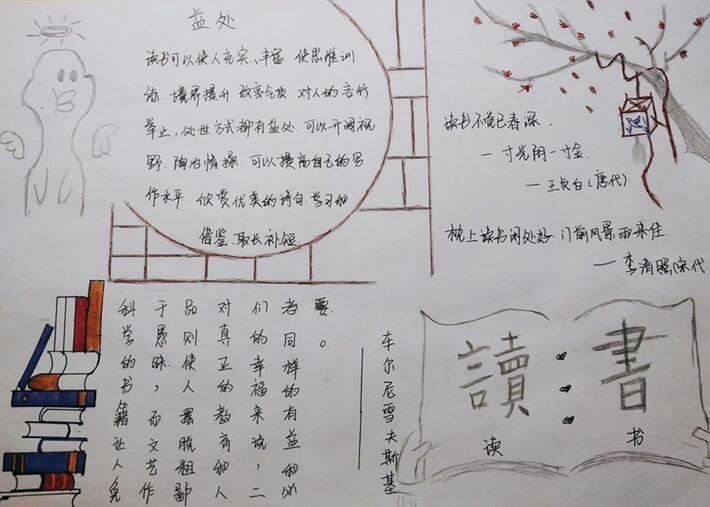 益处
读书可以使人充实、丰富 使思维训
活 境界提升 改变气质 对人的言行
举止，处世方式都有益处 可以开阔视
野 陶冶情操 可以提高自己的写
作水平 欣赏优美的诗句 学习和
借鉴 取长补短
读书不觉已春深
一寸光阴一寸金
—王贞白(唐代)
枕上读书闲处好 门前风景雨来佳
—李清照(宋代
科学的书籍让人免
于愚昧，而文艺作
品则使人摆脱粗鄙
对真正的教育和人
们的幸福来说，二
者同样的有益的必
要。
车尔尼雪夫斯基
讀書
读 书